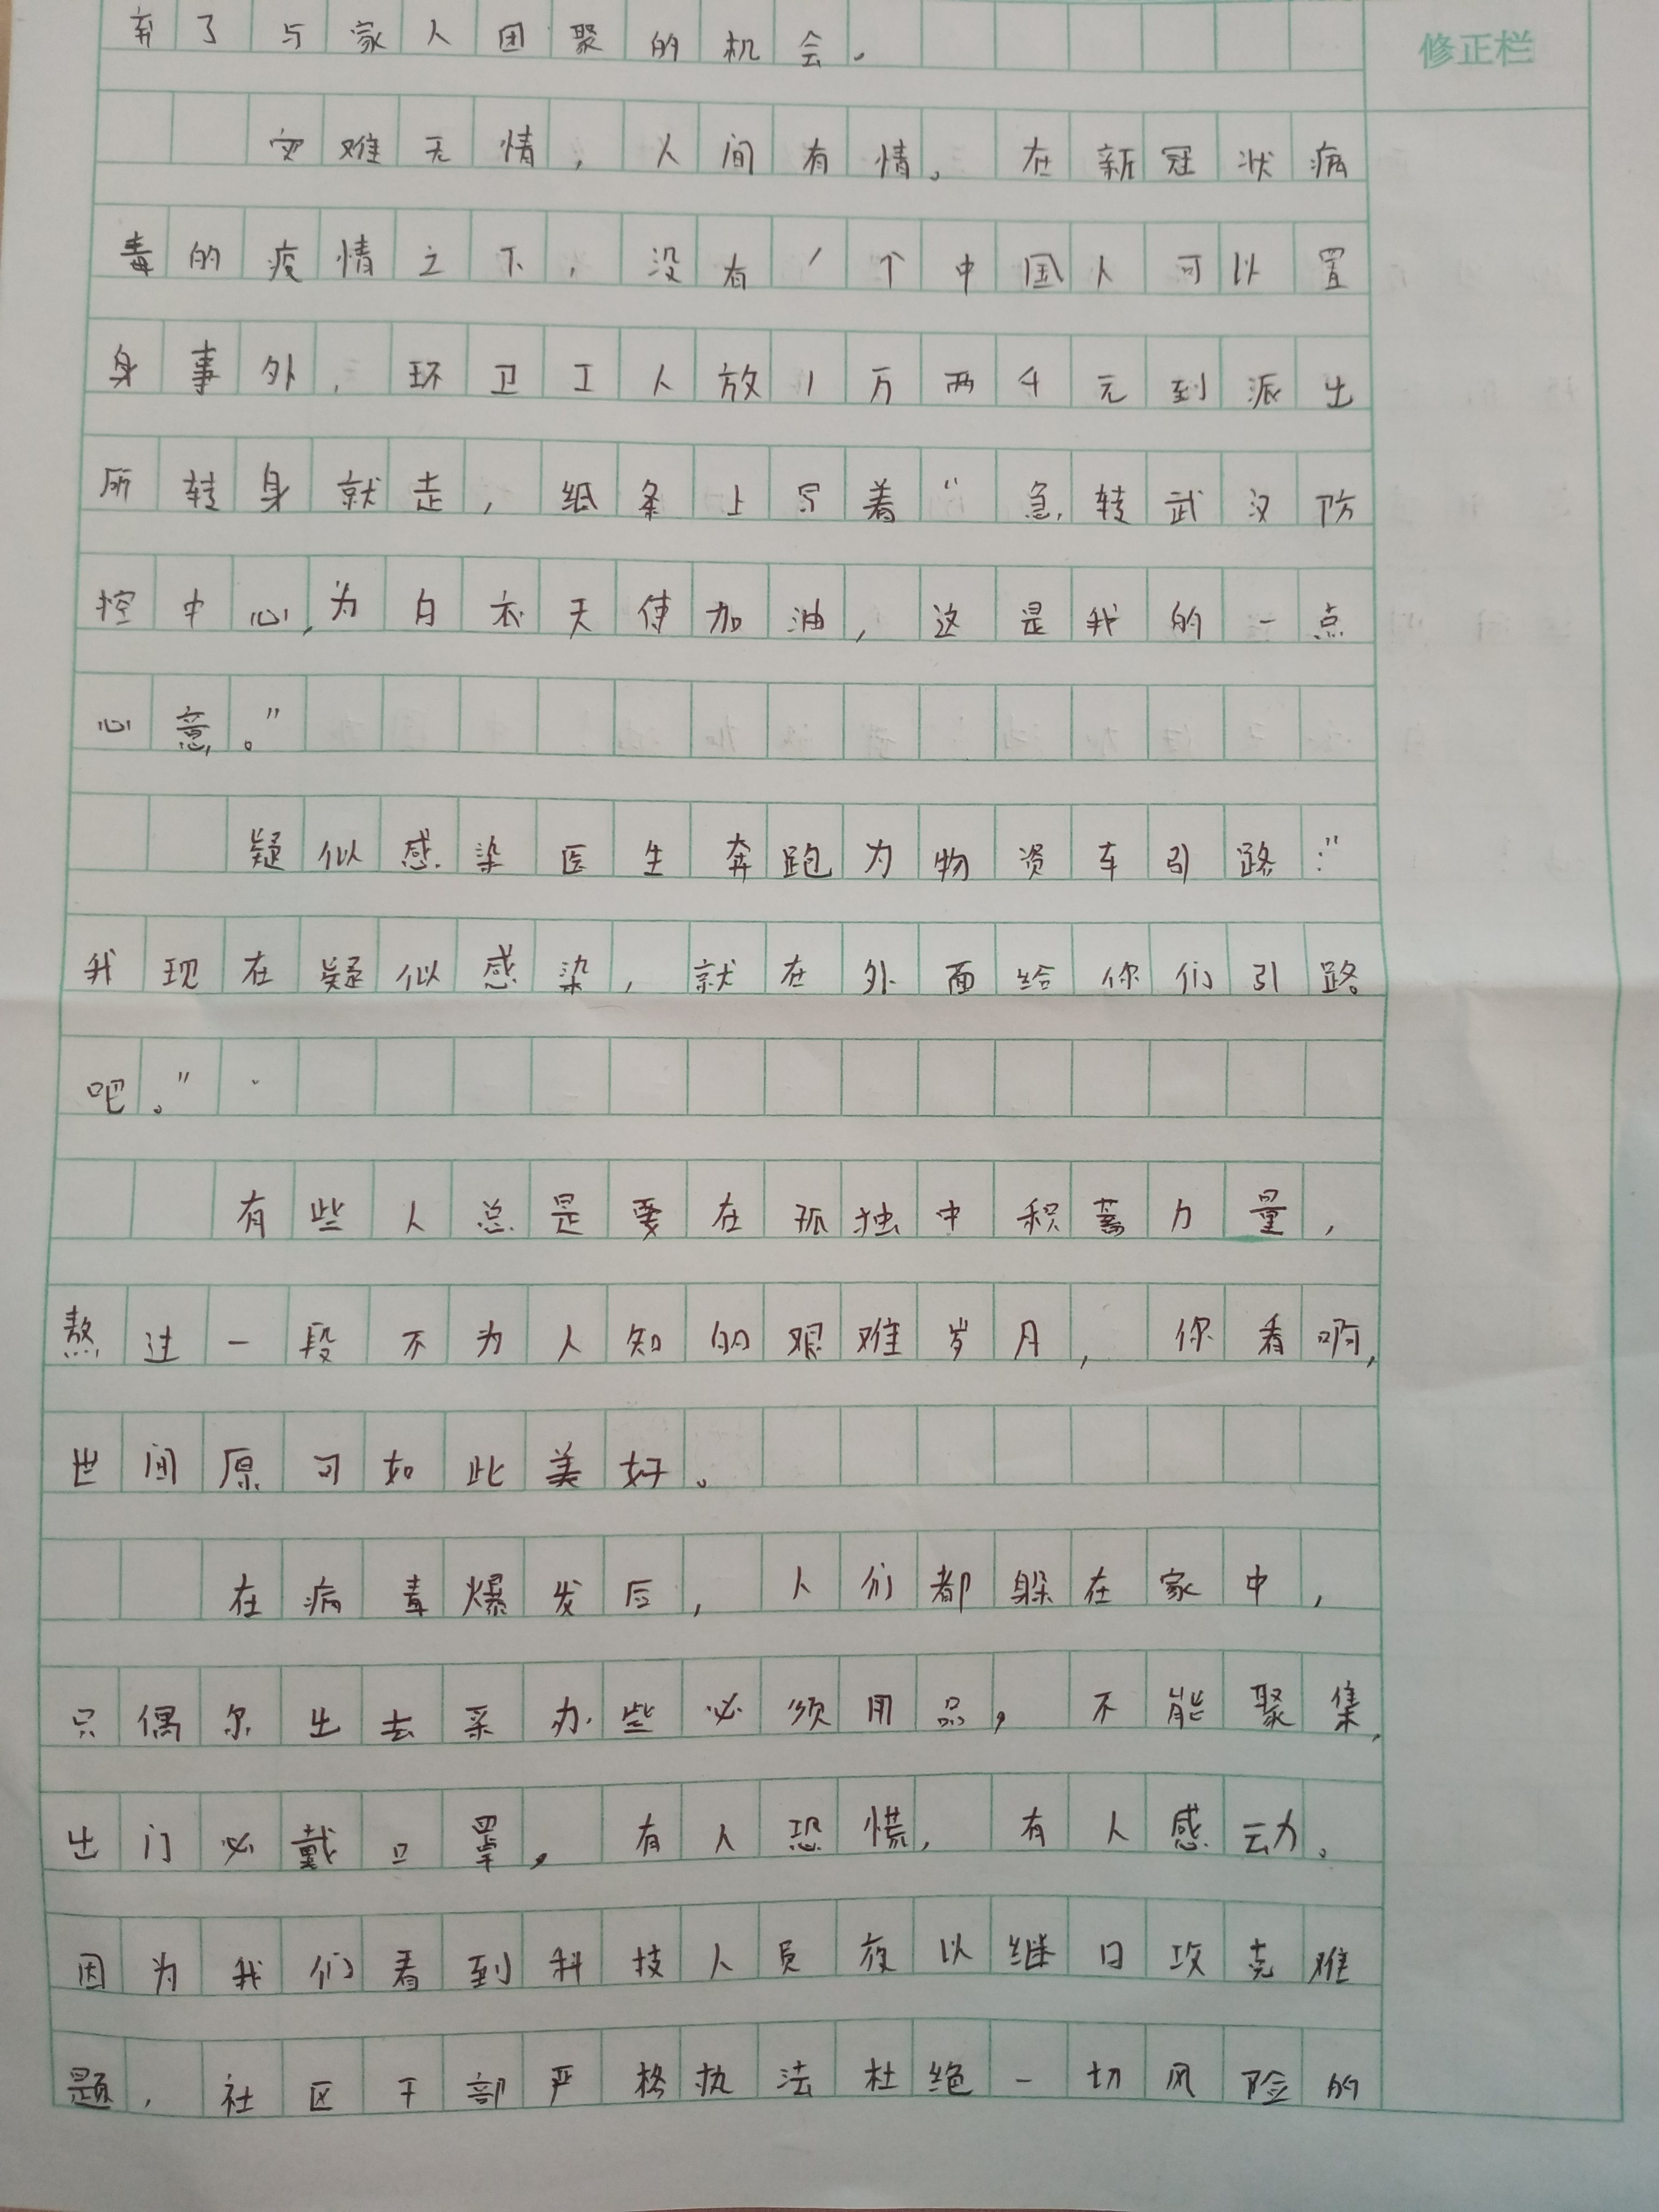 弃了与家人团聚的机会。
修正栏
灾难无情，人间有情。在新冠状病
毒的疫情之下，没有一个中国人可以置
身事外，环卫工人放1万两千元到派出
所转身就走，纸条上写着“急转武汉防
控中心，为白衣天使加油，这是我的一点
心意。”
疑似感染医生奔跑为物资车引路：“
我现在疑似感染，就在外面给你们引路
吧。”
有些人总是要在孤独中积蓄力量，
熬过一段不为人知的艰难岁月，你看啊，
世间原可如此美好。
在病毒爆发后，人们都躲在家中，
只偶尔出去采办些必须用品，不能聚集，
出门必戴口罩，有人恐慌，有人感动。
因为我们看到科技人员夜以继日攻克难
题，社区干部严格执法杜绝一切风险的